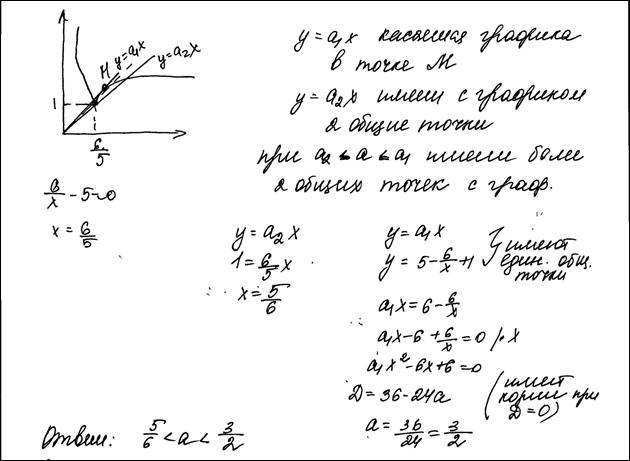 y=a₁x
y=a₂x
M
1
6/5
y=a₁x касательная графика
в точке M
y=a₂x имеет с графиком
2 общие точки
при a₂<a<a₁ имеем более
2 общих точек с граф.
6/x - 5=0
x = 6/5
y=a₂x
1= 6/5 x
x= 5/6
y=a₁x
y= 5- 6/x +1
имеют
един. общ.
точки
a₁x=6- 6/x
a₁x-6 + 6/x =0 |·x
a₁x²-6x+6=0
D=36-24a
(имеет
корни при
D=0)
a= 36/24 = 3/2
Ответ: 5/6 < a < 3/2